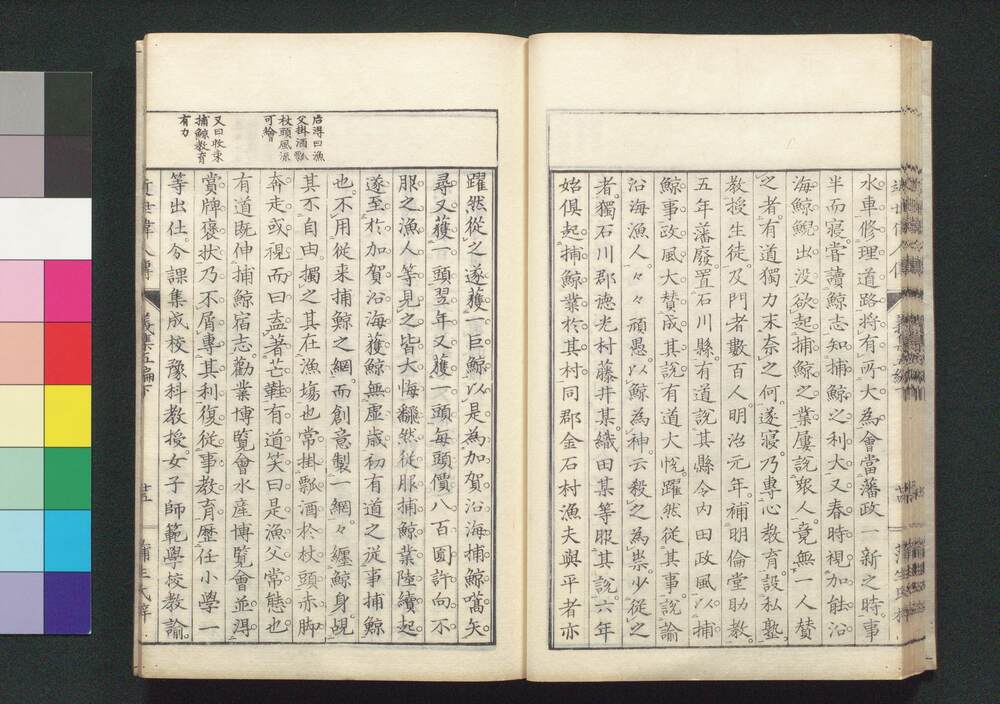 水車修理道路將有所大為會當藩政一新之時事
半而寢嘗讀鯨志知捕鯨之利大又春時視加能沿
海鯨鯢出没欲起捕鯨之業屢説衆人竟無一人賛
之者有道獨力末奈之何遂寢乃專心教育設私塾
教授生徒及門者數百人明治元年補明倫堂助教
五年藩廢置石川縣有道説其縣令内田政風以捕
鯨事政風大賛成其説有道大悦躍然從其事説諭
沿海漁人々々頑愚以鯨為神云殺之為祟少從之
者獨石川郡德光村藤井某織田某等服其説六年
始俱起捕鯨業於其村同郡金石村漁夫與平者亦
后淂曰漁
父掛酒瓢
杖頭風流
可繪
又曰收束
捕鯨教育
有力
躍然從之遂獲一巨鯨以是為加賀沿海捕鯨嚆矢
尋又獲一頭翌年又獲一頭每頭價八百圓許向不
服之漁人等見之皆大悔飜然從服捕鯨業陸續起
遂至於加賀沿海獲鯨無虛歳初有道之從事捕鯨
也不用從来捕鯨之網而創意製一網々纏鯨身覘
其不自由擉之其在漁塲也常掛瓢酒於杖頭赤脚
奔走或視而曰盍著芒鞋有道笑曰是漁父常態也
有道既伸捕鯨宿志勸業博覽會水産博覽會並淂
賞牌褒状乃不屑專其利復從事教育歴任小學一
等出仕今課集成校豫科教授女子師範學校教諭
近世偉人傳
義集五編下